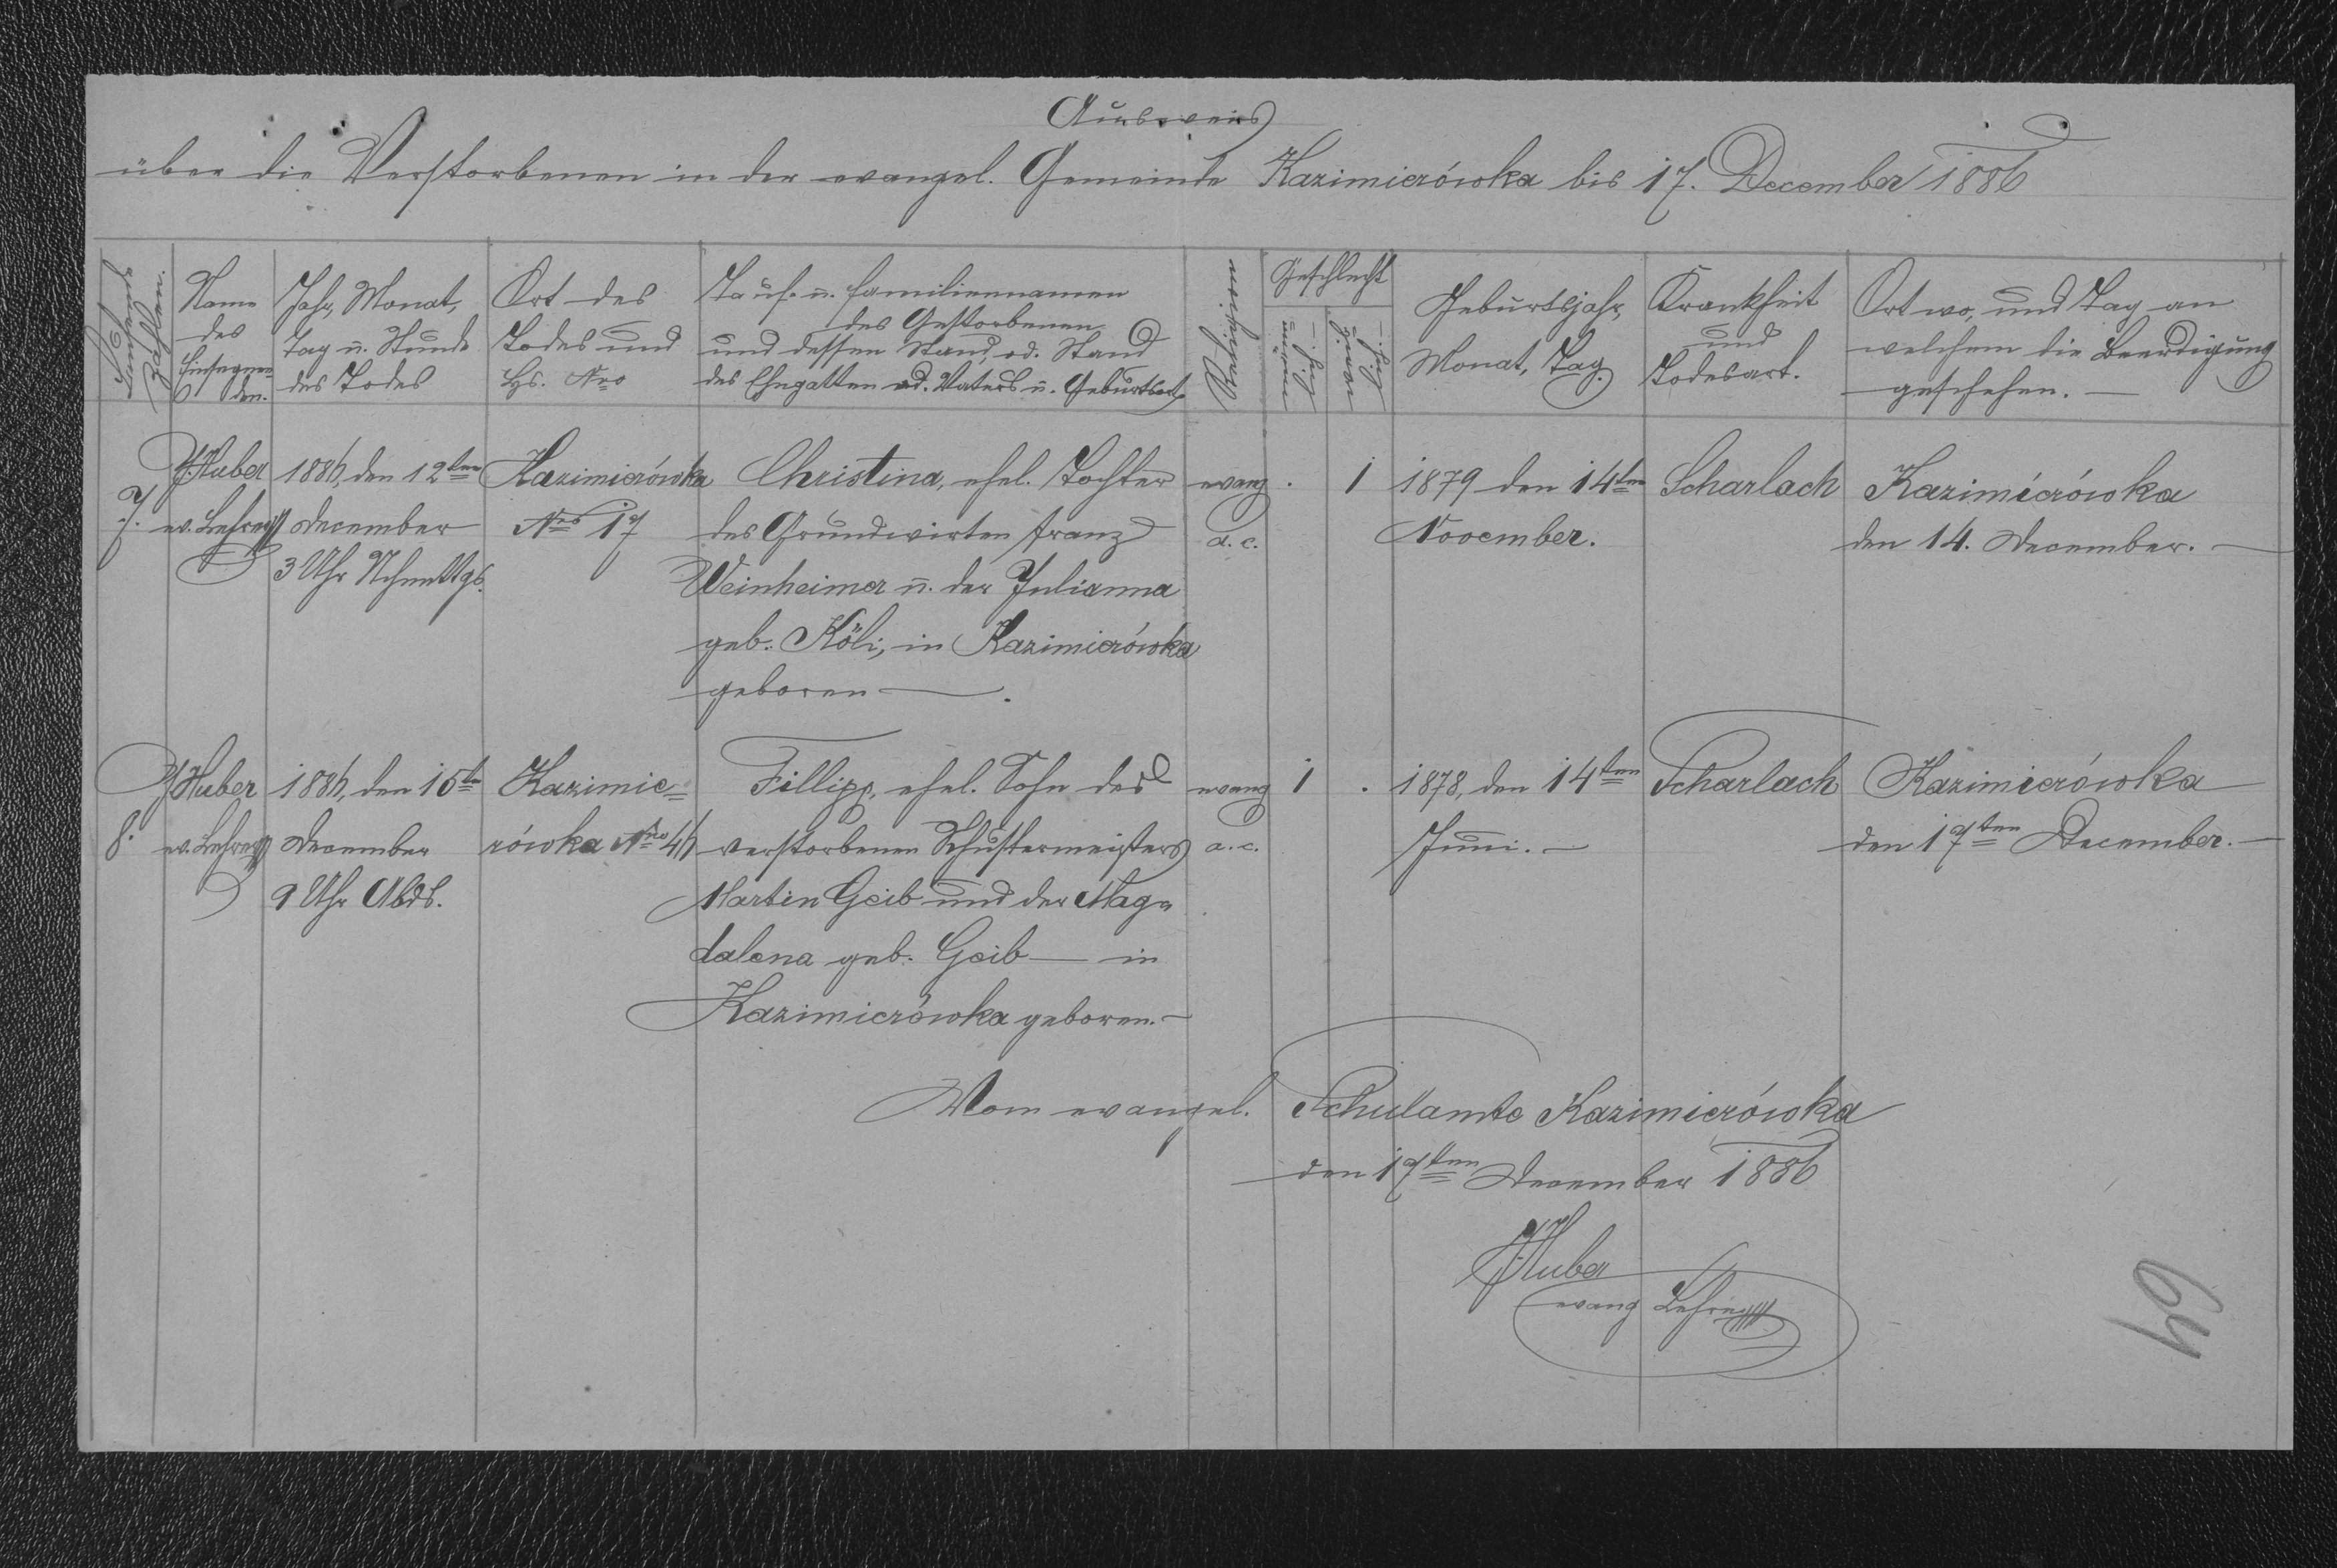 Ausweis
über die Verstorbenen in der evangel. Gemeinde Kazimierówka bis 17. December 1886
Fortlaufende
Zahlen.
Name
des
Einsegnen=
den.
Jahr, Monat,
Tag u. Stunde
des Todes
Ort des
Todes und
Hs. Nro
Tauf- u. Familiennamen
des Gestorbenen
und dessen Stand od. Stand
des Ehegatten od. Vaters u. Geburtsort
Religion
Geschlecht
männ-
lich
weib-
lich
Geburtsjahr,
Monat, Tag.
Krankheit
und
Todesart.
Ort wo, und Tag an
welchem die Beerdigung
geschehen. —
7.
J Huber
ev. Lehrer
1886, den 12ten
December
3 Uhr Nchmttgs.
Kazimierówka
Nro 17
Christina, ehel. Tochter
des Grundwirten Franz
Weinheimer u. der Julianna
geb. Köli, in Kazimierówka
geboren —.
evang
a. c.
. 1
1879 den 14ten
November.
Scharlach
Kazimierówka
den 14. December. —
8.
J Huber
ev. Lehrer
1886, den 15te
December
9 Uhr Abds.
Kazimie=
rówka Nro 46
Fillipp, ehel. Sohn des
verstorbenen Schustermeisters
Martin Geib und der Mag=
dalena geb. Geib — in
Kazimierówka geboren. —
evang
a. c.
1 .
1878, den 14ten
Juni. —
Scharlach
Kazimierówka
den 17ten December. —
Vom evangel. Schulamte Kazimierówka
den 17ten December 1886
J Huber
evang Lehrer
64